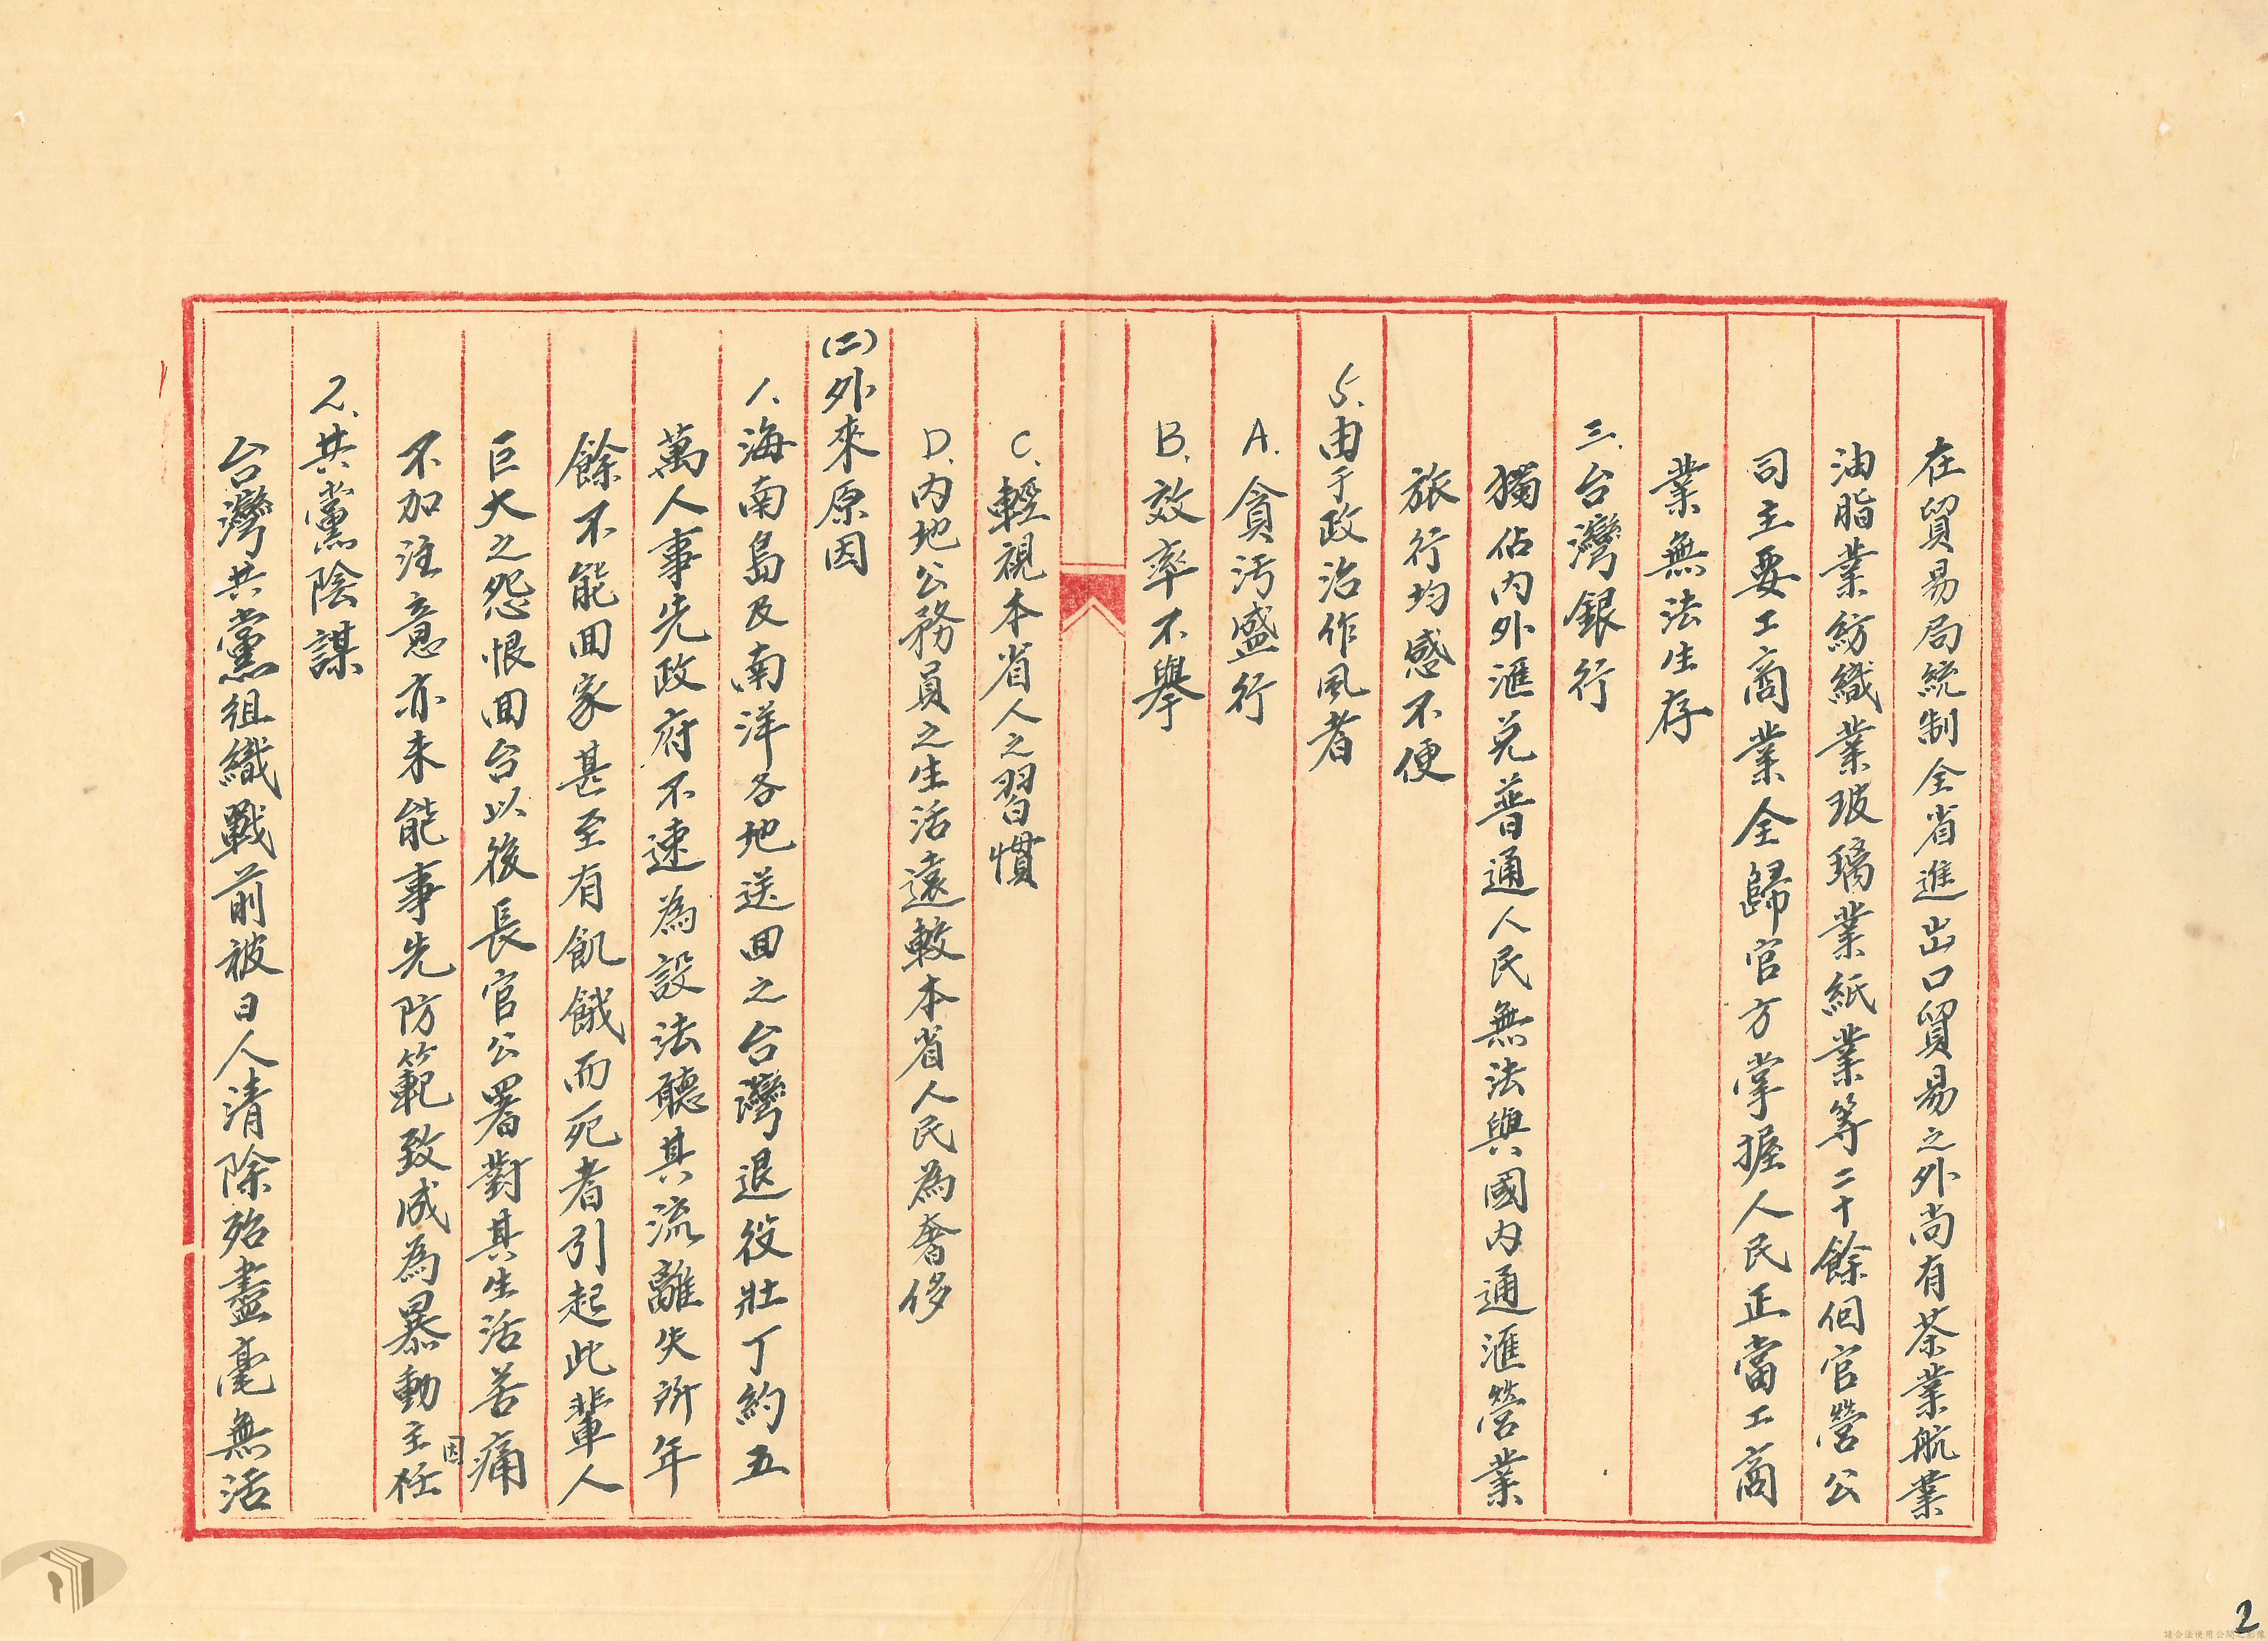 在貿易局統制全省進出口貿易之外尚有茶業航業
油脂業紡織業玻璃業紙業等二十餘個官營公
司主要工商業全歸官方掌握人民正當工商
業無法生存
三.台灣銀行
獨佔內外滙兌普通人民無法與國內通滙營業
旅行均感不便
5.由于政治作風者
A.貪汚盛行
B.效率不舉
C.輕視本省人之習慣
D.內地公務員之生活遠較本省人民為奢侈
(二)外來原因
1.海南島及南洋各地送回之台灣退役壯丁約五
萬人事先政府不速為設法聽其流離失所年
餘不能回家甚至有飢餓而死者引起此輩人
巨大之怨恨回台以後長官公署對其生活苦痛
不加注意亦未能事先防範致成為暴動主因
2.共黨陰謀
台灣共黨組織戰前被日人清除殆盡毫無活
2
請合法使用公開之影像